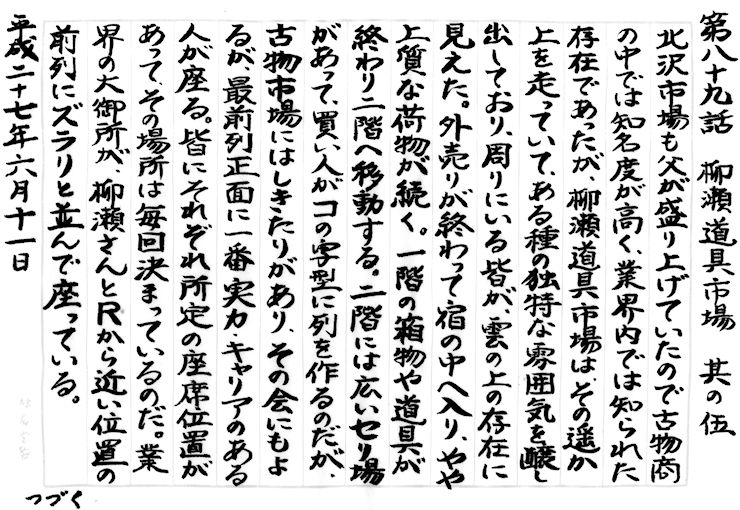 第八十九話　柳瀬道具市場　其の伍
北沢市場も父が盛り上げていたので古物商
の中では知名度が高く、業界内では知られた
存在であったが、柳瀬道具市場は、その遥か
上を走っていて、ある種の独特な雰囲気を醸し
出しており、周りにいる皆が、雲の上の存在に
見えた。外売りが終わって宿の中へ入り、やや
上質な荷物が続く。一階の箱物や道具が
終わり二階へ移動する。二階には広いセリ場
があって、買い人がコの字型に列を作るのだが、
古物市場にはしきたりがあり、その会にもよ
るが、最前列正面に一番実力、キャリアのある
人が座る。皆にそれぞれ所定の座席位置が
あって、その場所は毎回決まっているのだ。業
界の大御所が、柳瀬さんとRから近い位置の
前列にズラリと並んで座っている。
平成二十七年六月十一日
つづく